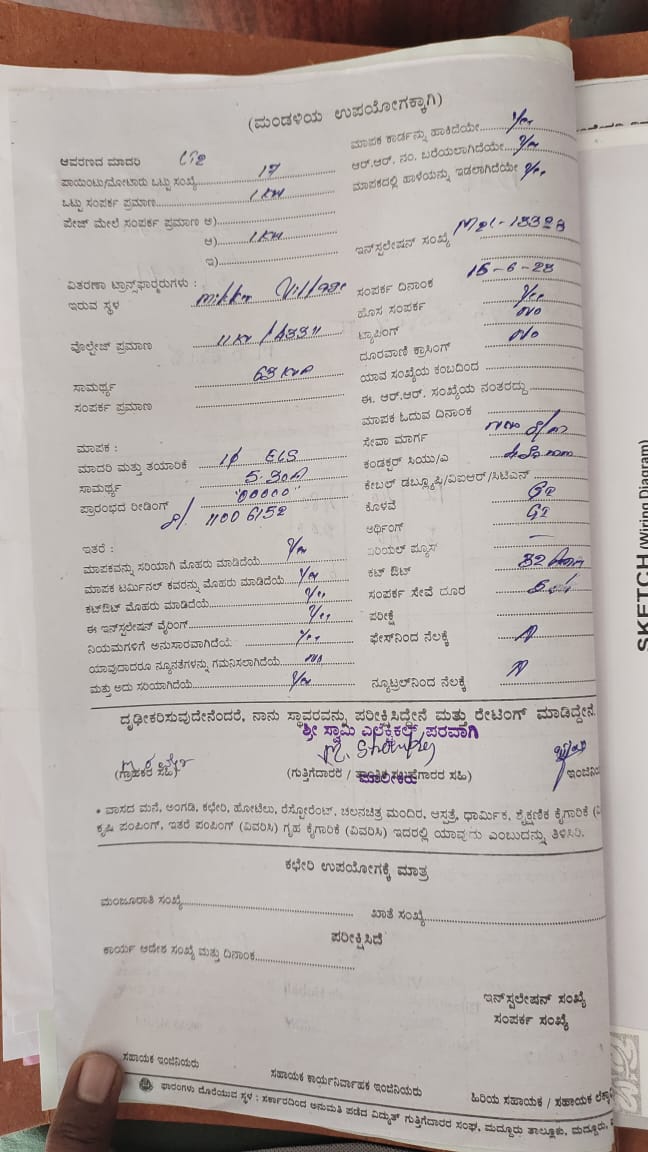 (ಮಂಡಳಿಯ ಉಪಯೋಗಕ್ಕಾಗಿ)
ಆವರಣದ ಮಾದರಿ
ಪಾಯಿಂಟು/ಮೋಟಾರು ಒಟ್ಟು ಸಂಖ್ಯೆ 17
ಒಟ್ಟು ಸಂಪರ್ಕ ಪ್ರಮಾಣ 1 KW
ಪೇಜ್ ಮೇಲೆ ಸಂಪರ್ಕ ಪ್ರಮಾಣ ಅ)
ಆ) 1 KW
ಇ)
ವಿತರಣಾ ಟ್ರಾನ್ಸ್‌ಫಾರ್‍ಮರುಗಳು :
ಇರುವ ಸ್ಥಳ Village
ವೋಲ್ಟೇಜ್ ಪ್ರಮಾಣ 11 KV /
ಸಾಮರ್ಥ್ಯ 63 KVA
ಸಂಪರ್ಕ ಪ್ರಮಾಣ
ಮಾಪಕ :
ಮಾದರಿ ಮತ್ತು ತಯಾರಿಕೆ 1φ
ಸಾಮರ್ಥ್ಯ 5-30A
ಪ್ರಾರಂಭದ ರೀಡಿಂಗ್ "00000"
11006152
ಇತರೆ :
ಮಾಪಕವನ್ನು ಸರಿಯಾಗಿ ಮೊಹರು ಮಾಡಿದೆಯೆ Yes
ಮಾಪಕ ಟರ್ಮಿನಲ್ ಕವರನ್ನು ಮೊಹರು ಮಾಡಿದೆಯೆ Yes
ಕಟ್‌ಔಟ್ ಮೊಹರು ಮಾಡಿದೆಯೆ Yes
ಈ ಇನ್‌ಸ್ಟಲೇಷನ್ ವೈರಿಂಗ್ Yes
ನಿಯಮಗಳಿಗೆ ಅನುಸಾರವಾಗಿದೆಯೆ Yes
ಯಾವುದಾದರೂ ನ್ಯೂನತೆಗಳನ್ನು ಗಮನಿಸಲಾಗಿದೆಯೆ No
ಮತ್ತು ಅದು ಸರಿಯಾಗಿದೆಯೆ Yes
ಮಾಪಕ ಕಾರ್ಡನ್ನು ಹಾಕಿದೆಯೇ Yes
ಆರ್.ಆರ್. ನಂ. ಬರೆಯಲಾಗಿದೆಯೇ Yes
ಮಾಪಕದಲ್ಲಿ ಹಾಳೆಯನ್ನು ಇಡಲಾಗಿದೆಯೇ Yes
ಇನ್‌ಸ್ಟಲೇಷನ್ ಸಂಖ್ಯೆ
ಸಂಪರ್ಕ ದಿನಾಂಕ
ಹೊಸ ಸಂಪರ್ಕ Yes
ಟ್ಯಾಪಿಂಗ್ No
ದೂರವಾಣಿ ಕ್ರಾಸಿಂಗ್ No
ಯಾವ ಸಂಖ್ಯೆಯ ಕಂಬದಿಂದ
ಈ. ಆರ್.ಆರ್. ಸಂಖ್ಯೆಯ ನಂತರದ್ದು
ಮಾಪಕ ಓದುವ ದಿನಾಂಕ
ಸೇವಾ ಮಾರ್ಗ
ಕಂಡಕ್ಟರ್ ಸಿಯು/ಎ
ಕೇಬಲ್ ಡಬ್ಲ್ಯೂಪಿ/ವಿಐಆರ್/ಸಿಟಿಎಸ್
ಕೊಳವೆ GI
ಅರ್ಥಿಂಗ್ GI
ಏರಿಯಲ್ ಫ್ಯೂಸ್ —
ಕಟ್ ಔಟ್ 32
ಸಂಪರ್ಕ ಸೇವೆ ದೂರ
ಪರೀಕ್ಷೆ
ಫೇಸ್‌ನಿಂದ ನೆಲಕ್ಕೆ
ನ್ಯೂಟ್ರಲ್‌ನಿಂದ ನೆಲಕ್ಕೆ
ದೃಢೀಕರಿಸುವುದೇನೆಂದರೆ, ನಾನು ಸ್ಥಾವರವನ್ನು ಪರೀಕ್ಷಿಸಿದ್ದೇನೆ ಮತ್ತು ರೇಟಿಂಗ್ ಮಾಡಿದ್ದೇನೆ.
ಶ್ರೀ ಸ್ವಾಮಿ ಎಲೆಕ್ಟ್ರಿಕಲ್ಸ್ ಪರವಾಗಿ
(ಗ್ರಾಹಕರ ಸಹಿ)
(ಗುತ್ತಿಗೆದಾರರ /
ಮಾಲೀಕರು
* ವಾಸದ ಮನೆ, ಅಂಗಡಿ, ಕಛೇರಿ, ಹೋಟೆಲು, ರೆಸ್ಟೋರೆಂಟ್, ಚಲನಚಿತ್ರ ಮಂದಿರ, ಆಸ್ಪತ್ರೆ, ಧಾರ್ಮಿಕ, ಶೈಕ್ಷಣಿಕ ಕೈಗಾರಿಕೆ
ಕೃಷಿ ಪಂಪಿಂಗ್, ಇತರೆ ಪಂಪಿಂಗ್ (ವಿವರಿಸಿ) ಗೃಹ ಕೈಗಾರಿಕೆ (ವಿವರಿಸಿ) ಇದರಲ್ಲಿ ಯಾವುದು ಎಂಬುದನ್ನು ತಿಳಿಸಿರಿ.
ಕಛೇರಿ ಉಪಯೋಗಕ್ಕೆ ಮಾತ್ರ
ಮಂಜೂರಾತಿ ಸಂಖ್ಯೆ ಖಾತೆ ಸಂಖ್ಯೆ
ಪರೀಕ್ಷಿಸಿದೆ
ಕಾರ್ಯ ಆದೇಶ ಸಂಖ್ಯೆ ಮತ್ತು ದಿನಾಂಕ
ಇನ್‌ಸ್ಟಲೇಷನ್ ಸಂಖ್ಯೆ
ಸಂಪರ್ಕ ಸಂಖ್ಯೆ
ಸಹಾಯಕ ಇಂಜಿನಿಯರು ಸಹಾಯಕ ಕಾರ್ಯನಿರ್ವಾಹಕ ಇಂಜಿನಿಯರು ಹಿರಿಯ ಸಹಾಯಕ / ಸಹಾಯಕ
ಫಾರಂಗಳು ದೊರೆಯುವ ಸ್ಥಳ : ಸರ್ಕಾರದಿಂದ ಅನುಮತಿ ಪಡೆದ ವಿದ್ಯುತ್ ಗುತ್ತಿಗೆದಾರರ ಸಂಘ, ಮದ್ದೂರು ತಾಲ್ಲೂಕು, ಮದ್ದೂರು,
SKETCH (Wiring Diagram)